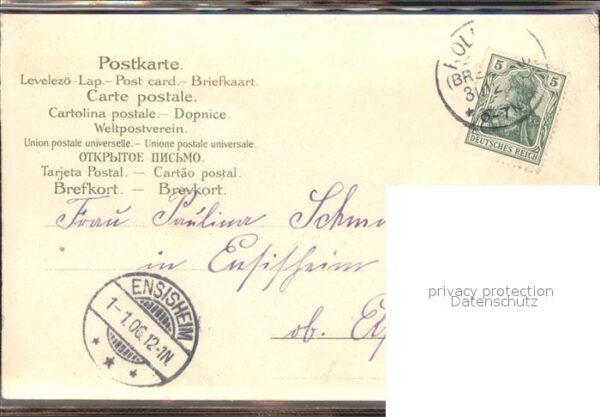 Postkarte.
Levelező-Lap. — Post card. — Briefkaart.
Carte postale.
Cartolina postale. — Dopnice.
Weltpostverein.
Union postale universelle. — Unione postale universale.
ОТКРЫТОЕ ПИСЬМО.
Tarjeta Postal. — Cartão postal.
Brefkort. — Brevkort.
5 5
DEUTSCHES REICH
Frau Paulina
in Ensisheim
ob.
ENSISHEIM
1-1.06.12-1N.
privacy protection
Datenschutz